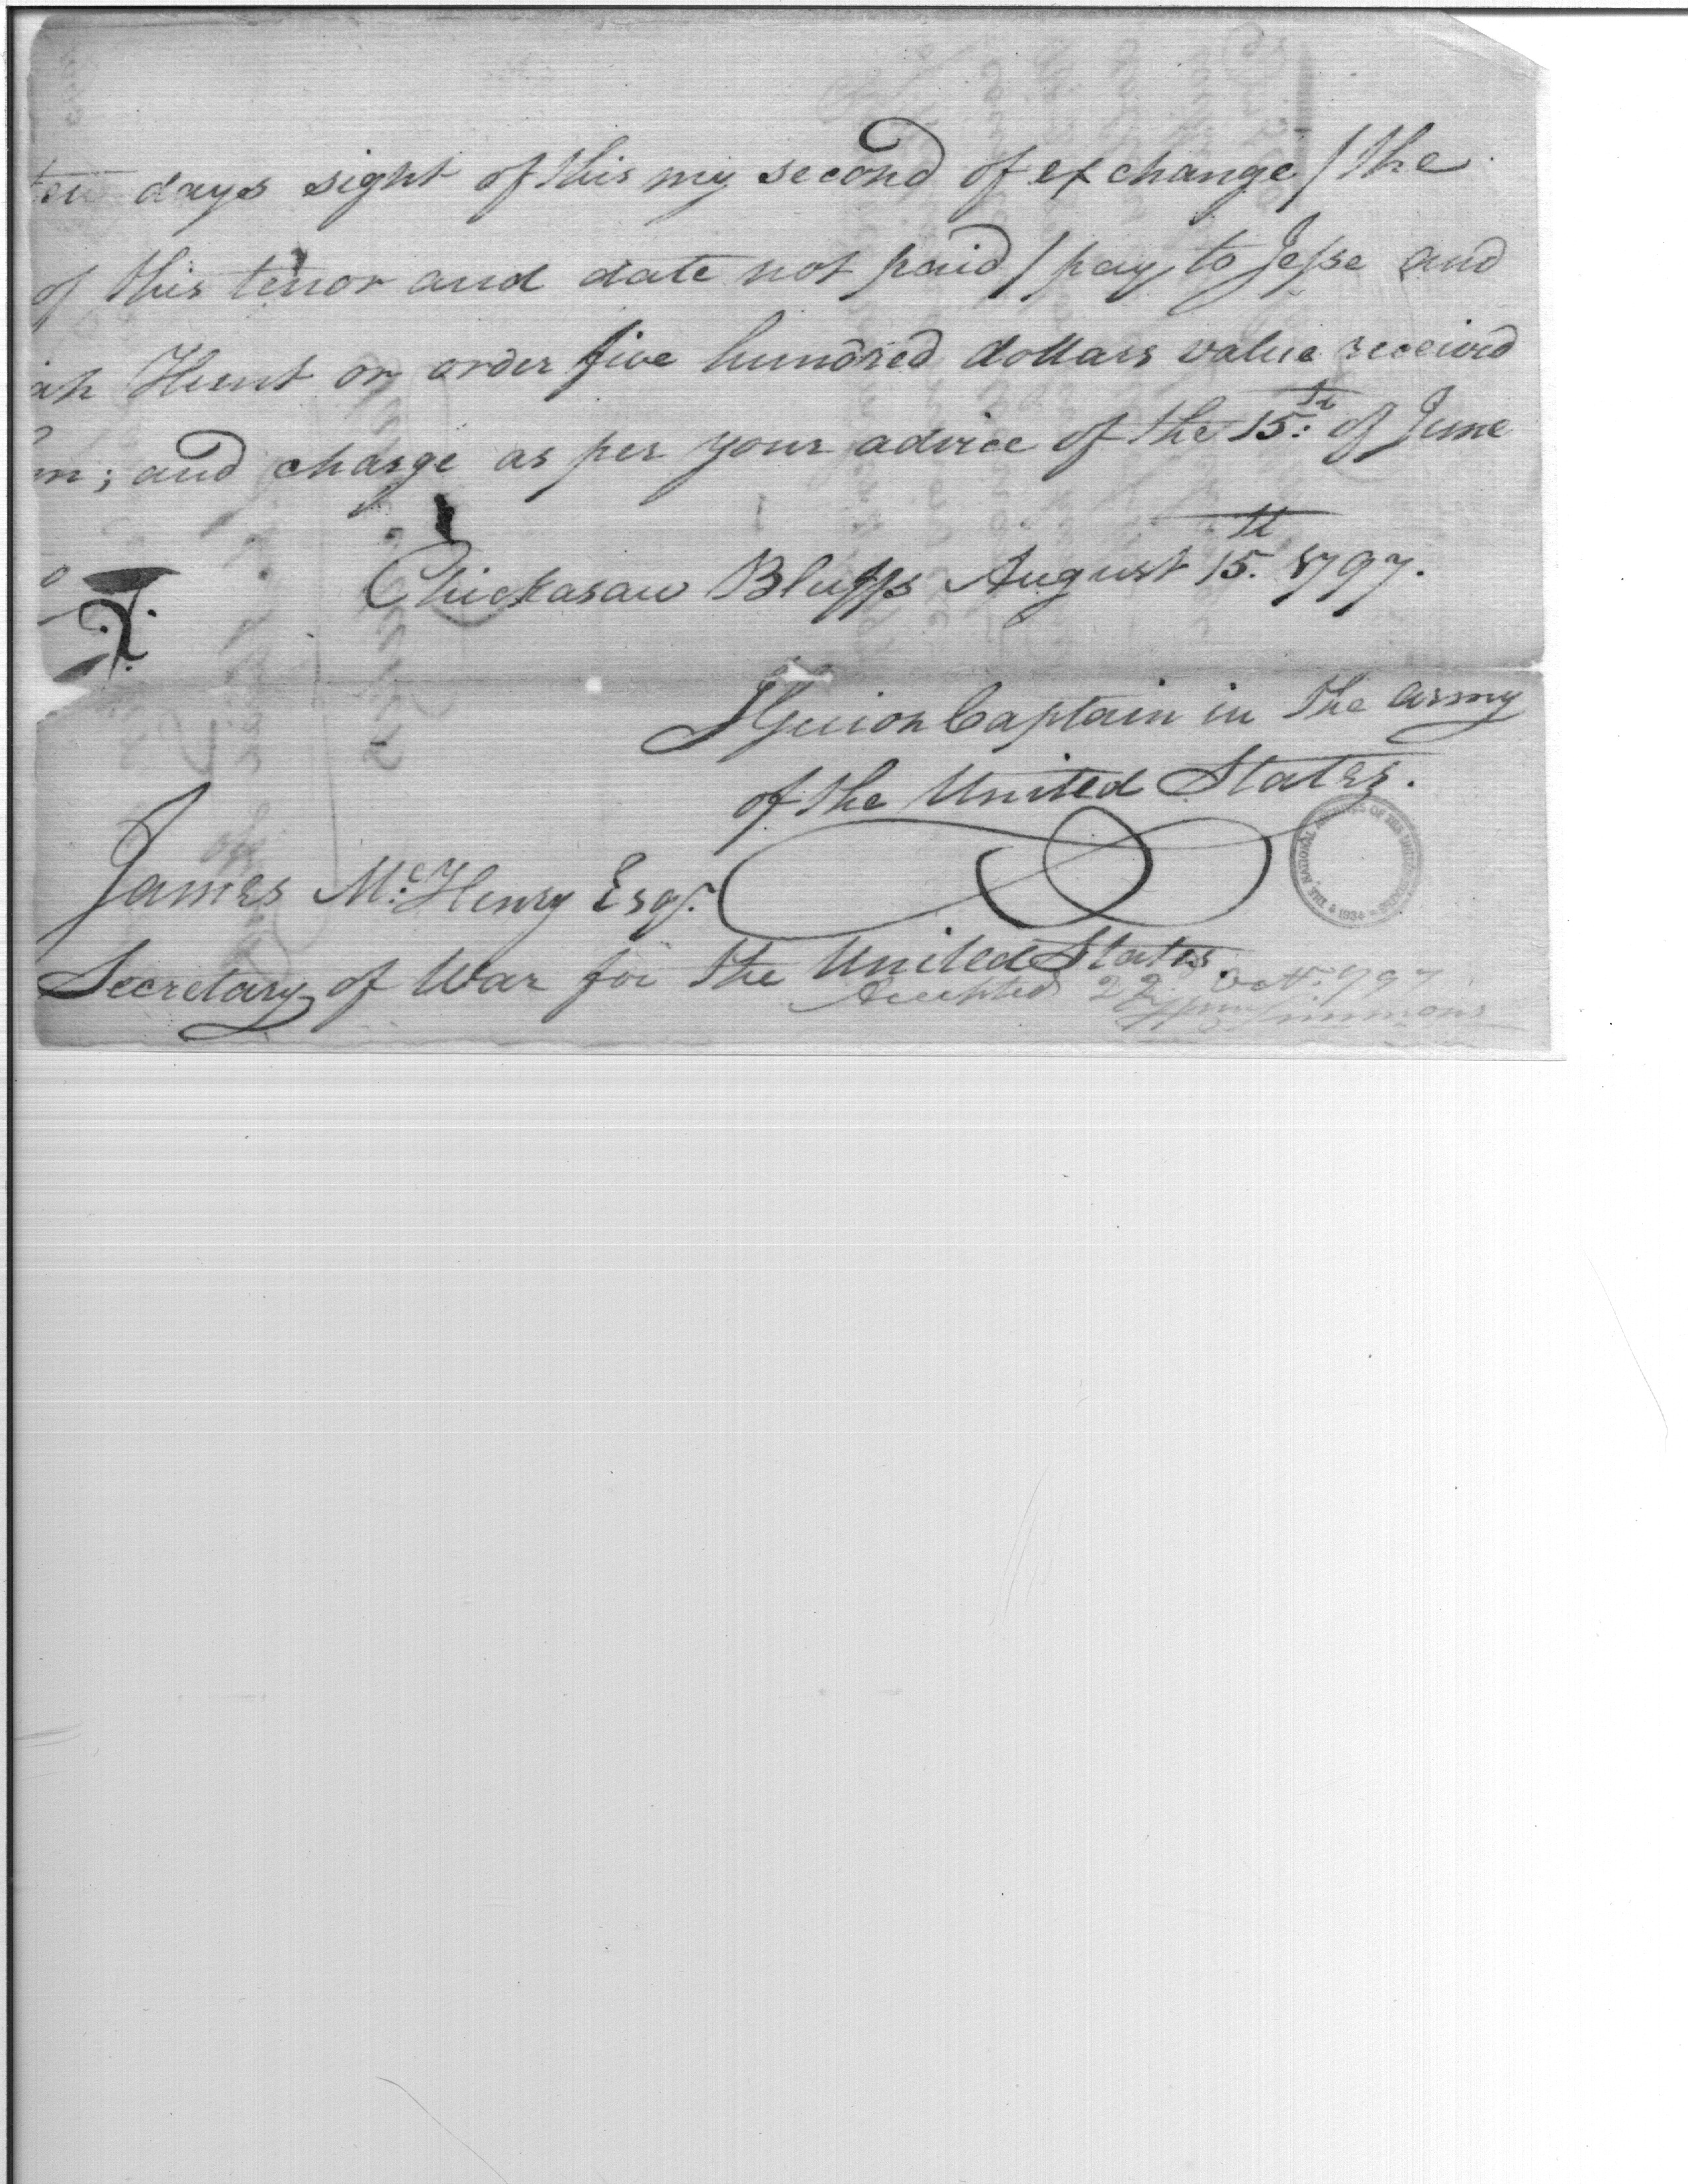 ten days sight of this my second of exchange / the
of this tenor and date not paid / pay to Jesse and
ah Hunt or order five hundred dollars value received
m; and charge as per your advice of the 15th of June
Chickasaw Bluffs August 15th 1797.
I Guion Captain in the army
of the United States.
James McHenry Esqr.
Secretary of War for the United States.
Accepted 22 Octr. 1797
Simmons
THE NATIONAL ARCHIVES OF THE UNITED STATES 1934